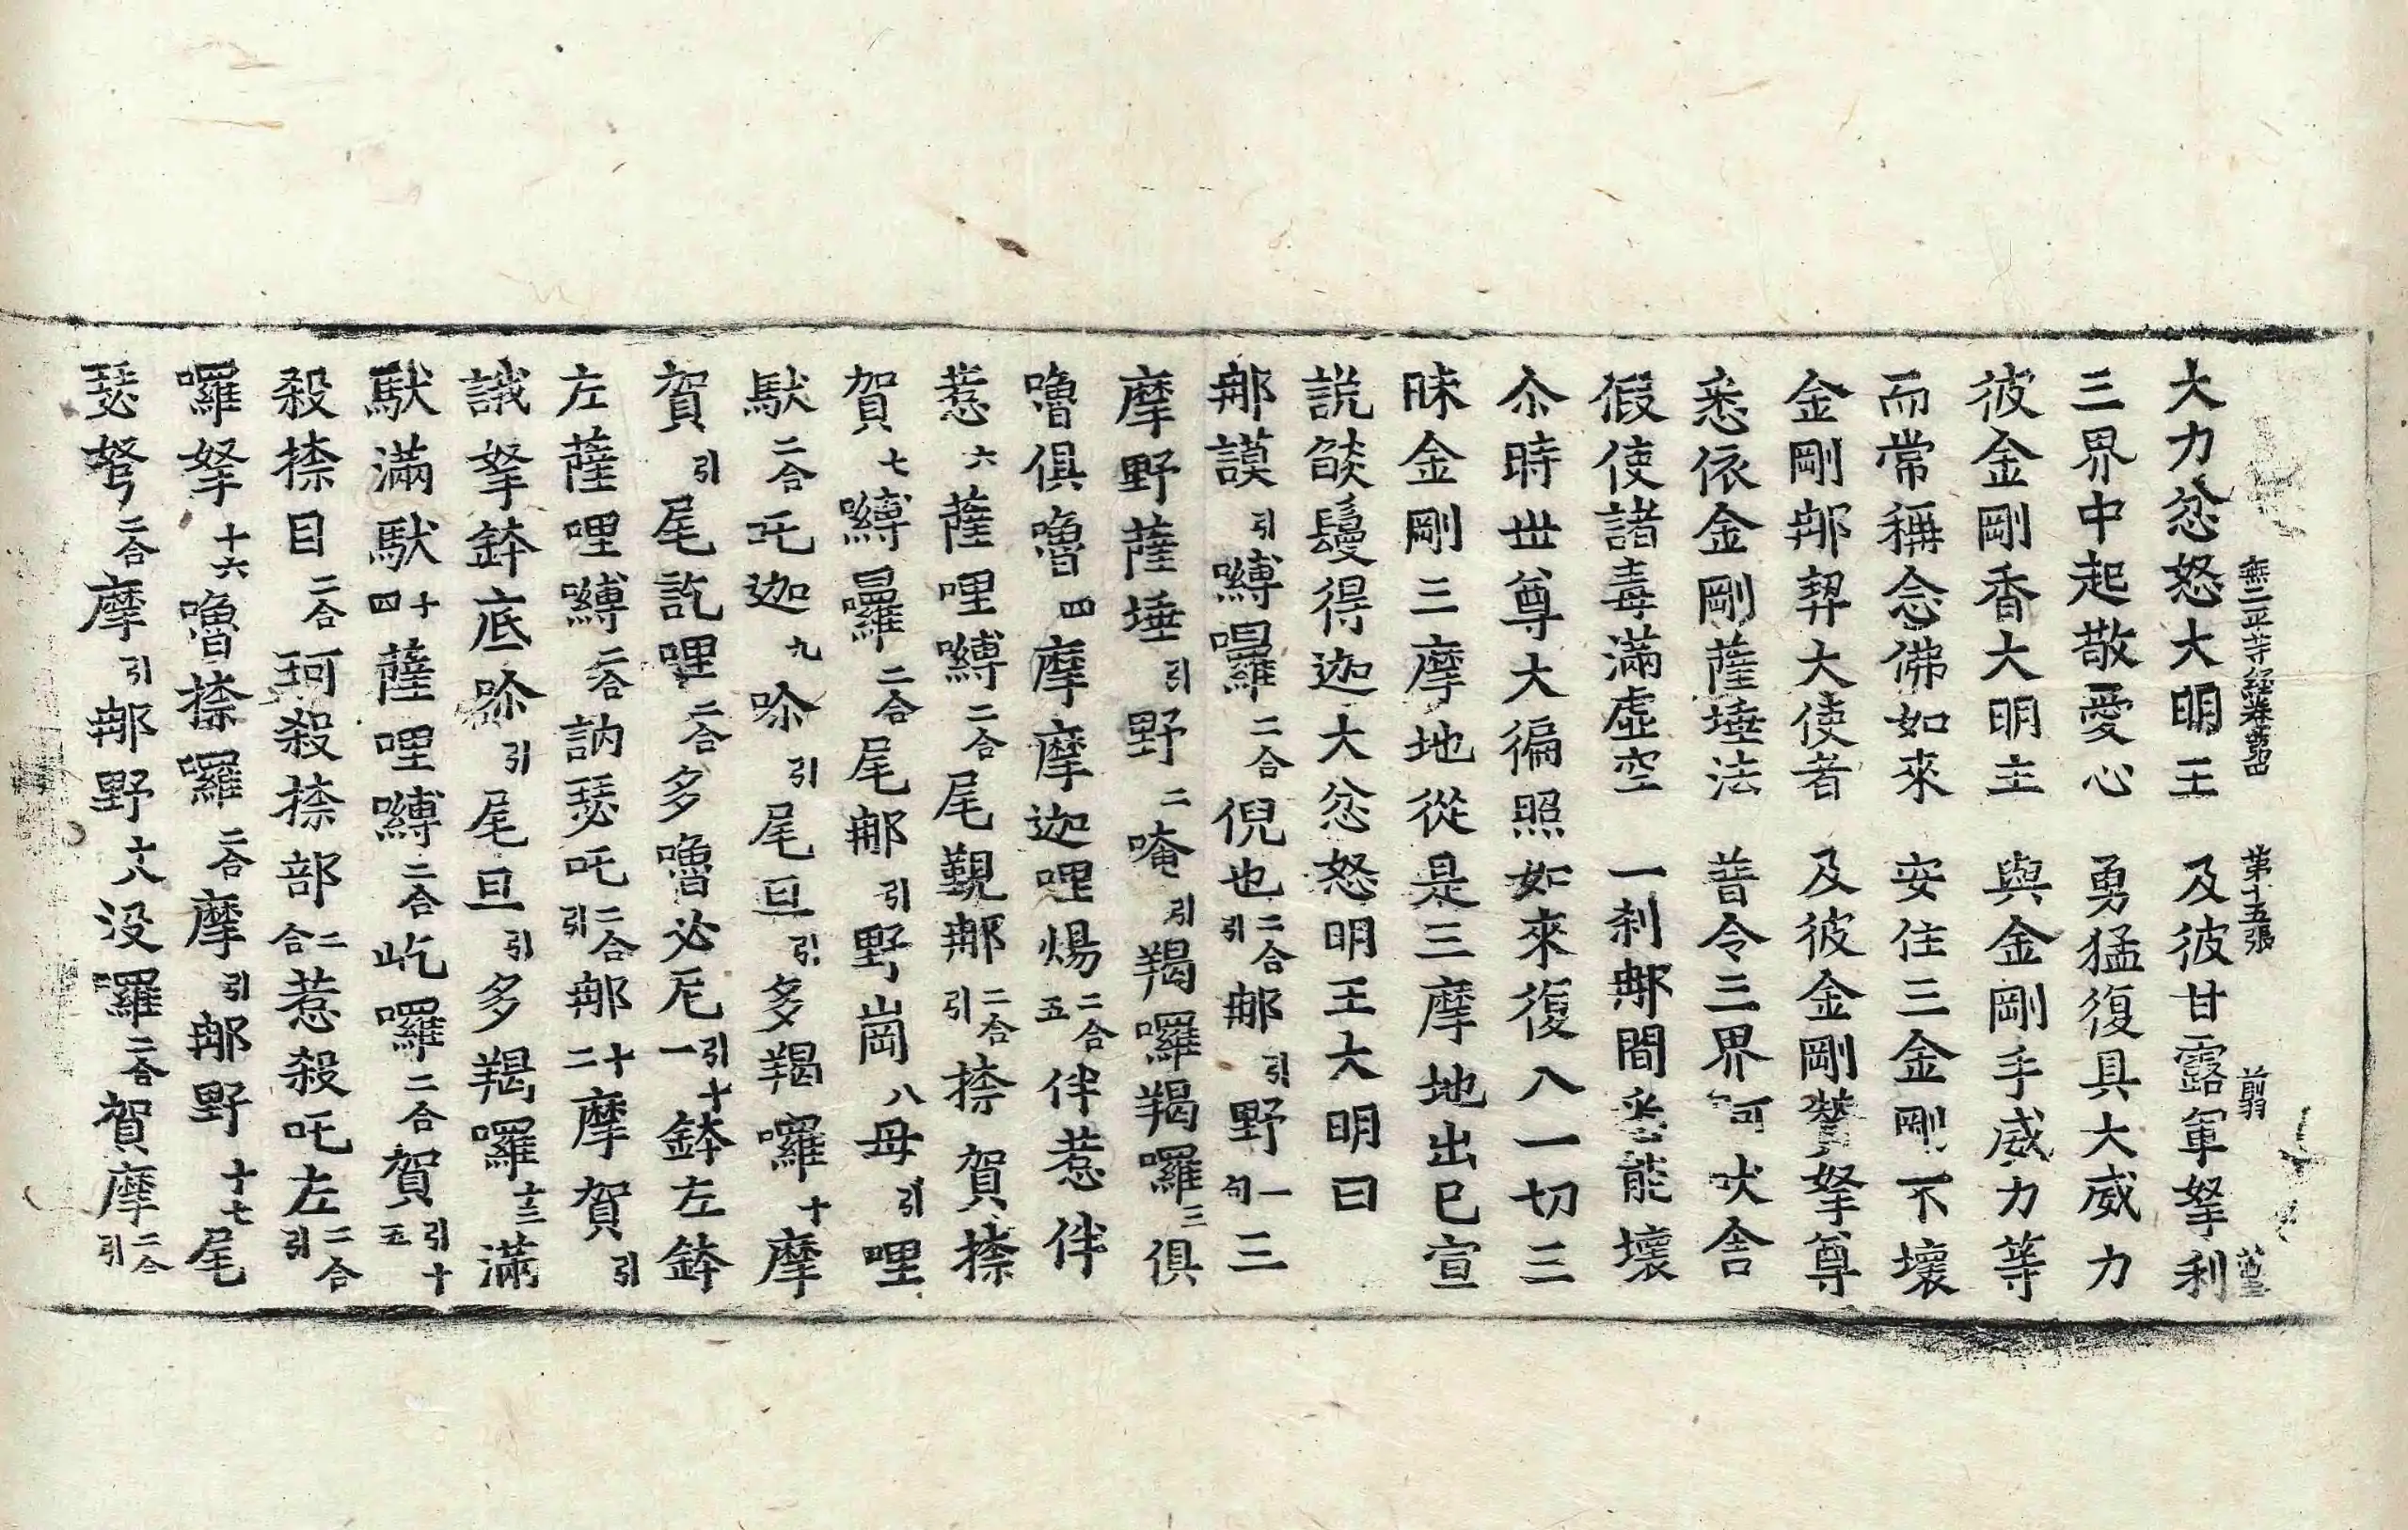 無二平等經卷第四 第十五張 剪
大力忿怒大明王 及彼甘露軍拏利
三界中起敬愛心 勇猛復具大威力
彼金剛香大明主 與金剛手威力等
而常稱念佛如來 安住三金剛不壞
金剛那契大使者 及彼金剛贊拏尊
悉依金剛薩埵法 普令三界可吠舍
假使諸毒滿虛空 一刹那間悉能壞
尒時世尊大徧照如來復入一切三
昧金剛三摩地從是三摩地出已宣
說燄鬘得迦大忿怒明王大明曰
那謨引嚩囉二合倪也二合引那引野一句三
摩野薩埵引野二唵引羯囉羯囉三俱
嚕俱嚕四摩摩迦哩煬二合五伴惹伴
惹六薩哩嚩二合尾覲那二合引捺賀捺
賀七嚩囉二合尾那引野崗八母引哩
馱二合吒迦九哳引尾旦引多羯囉十摩
賀引尾訖哩二合多嚕必尼引十一鉢左鉢
左薩哩嚩二合訥瑟吒二合引那十二摩賀引
誐拏鉢底哳引尾旦引多羯囉十三滿
馱滿馱十四薩哩嚩二合屹囉二合賀引十五
殺捺目二合珂殺捺部二合惹殺吒左二合引
囉拏十六嚕捺囉二合摩引那野十七尾
瑟弩二合摩引那野十八没囉二合賀摩二合引